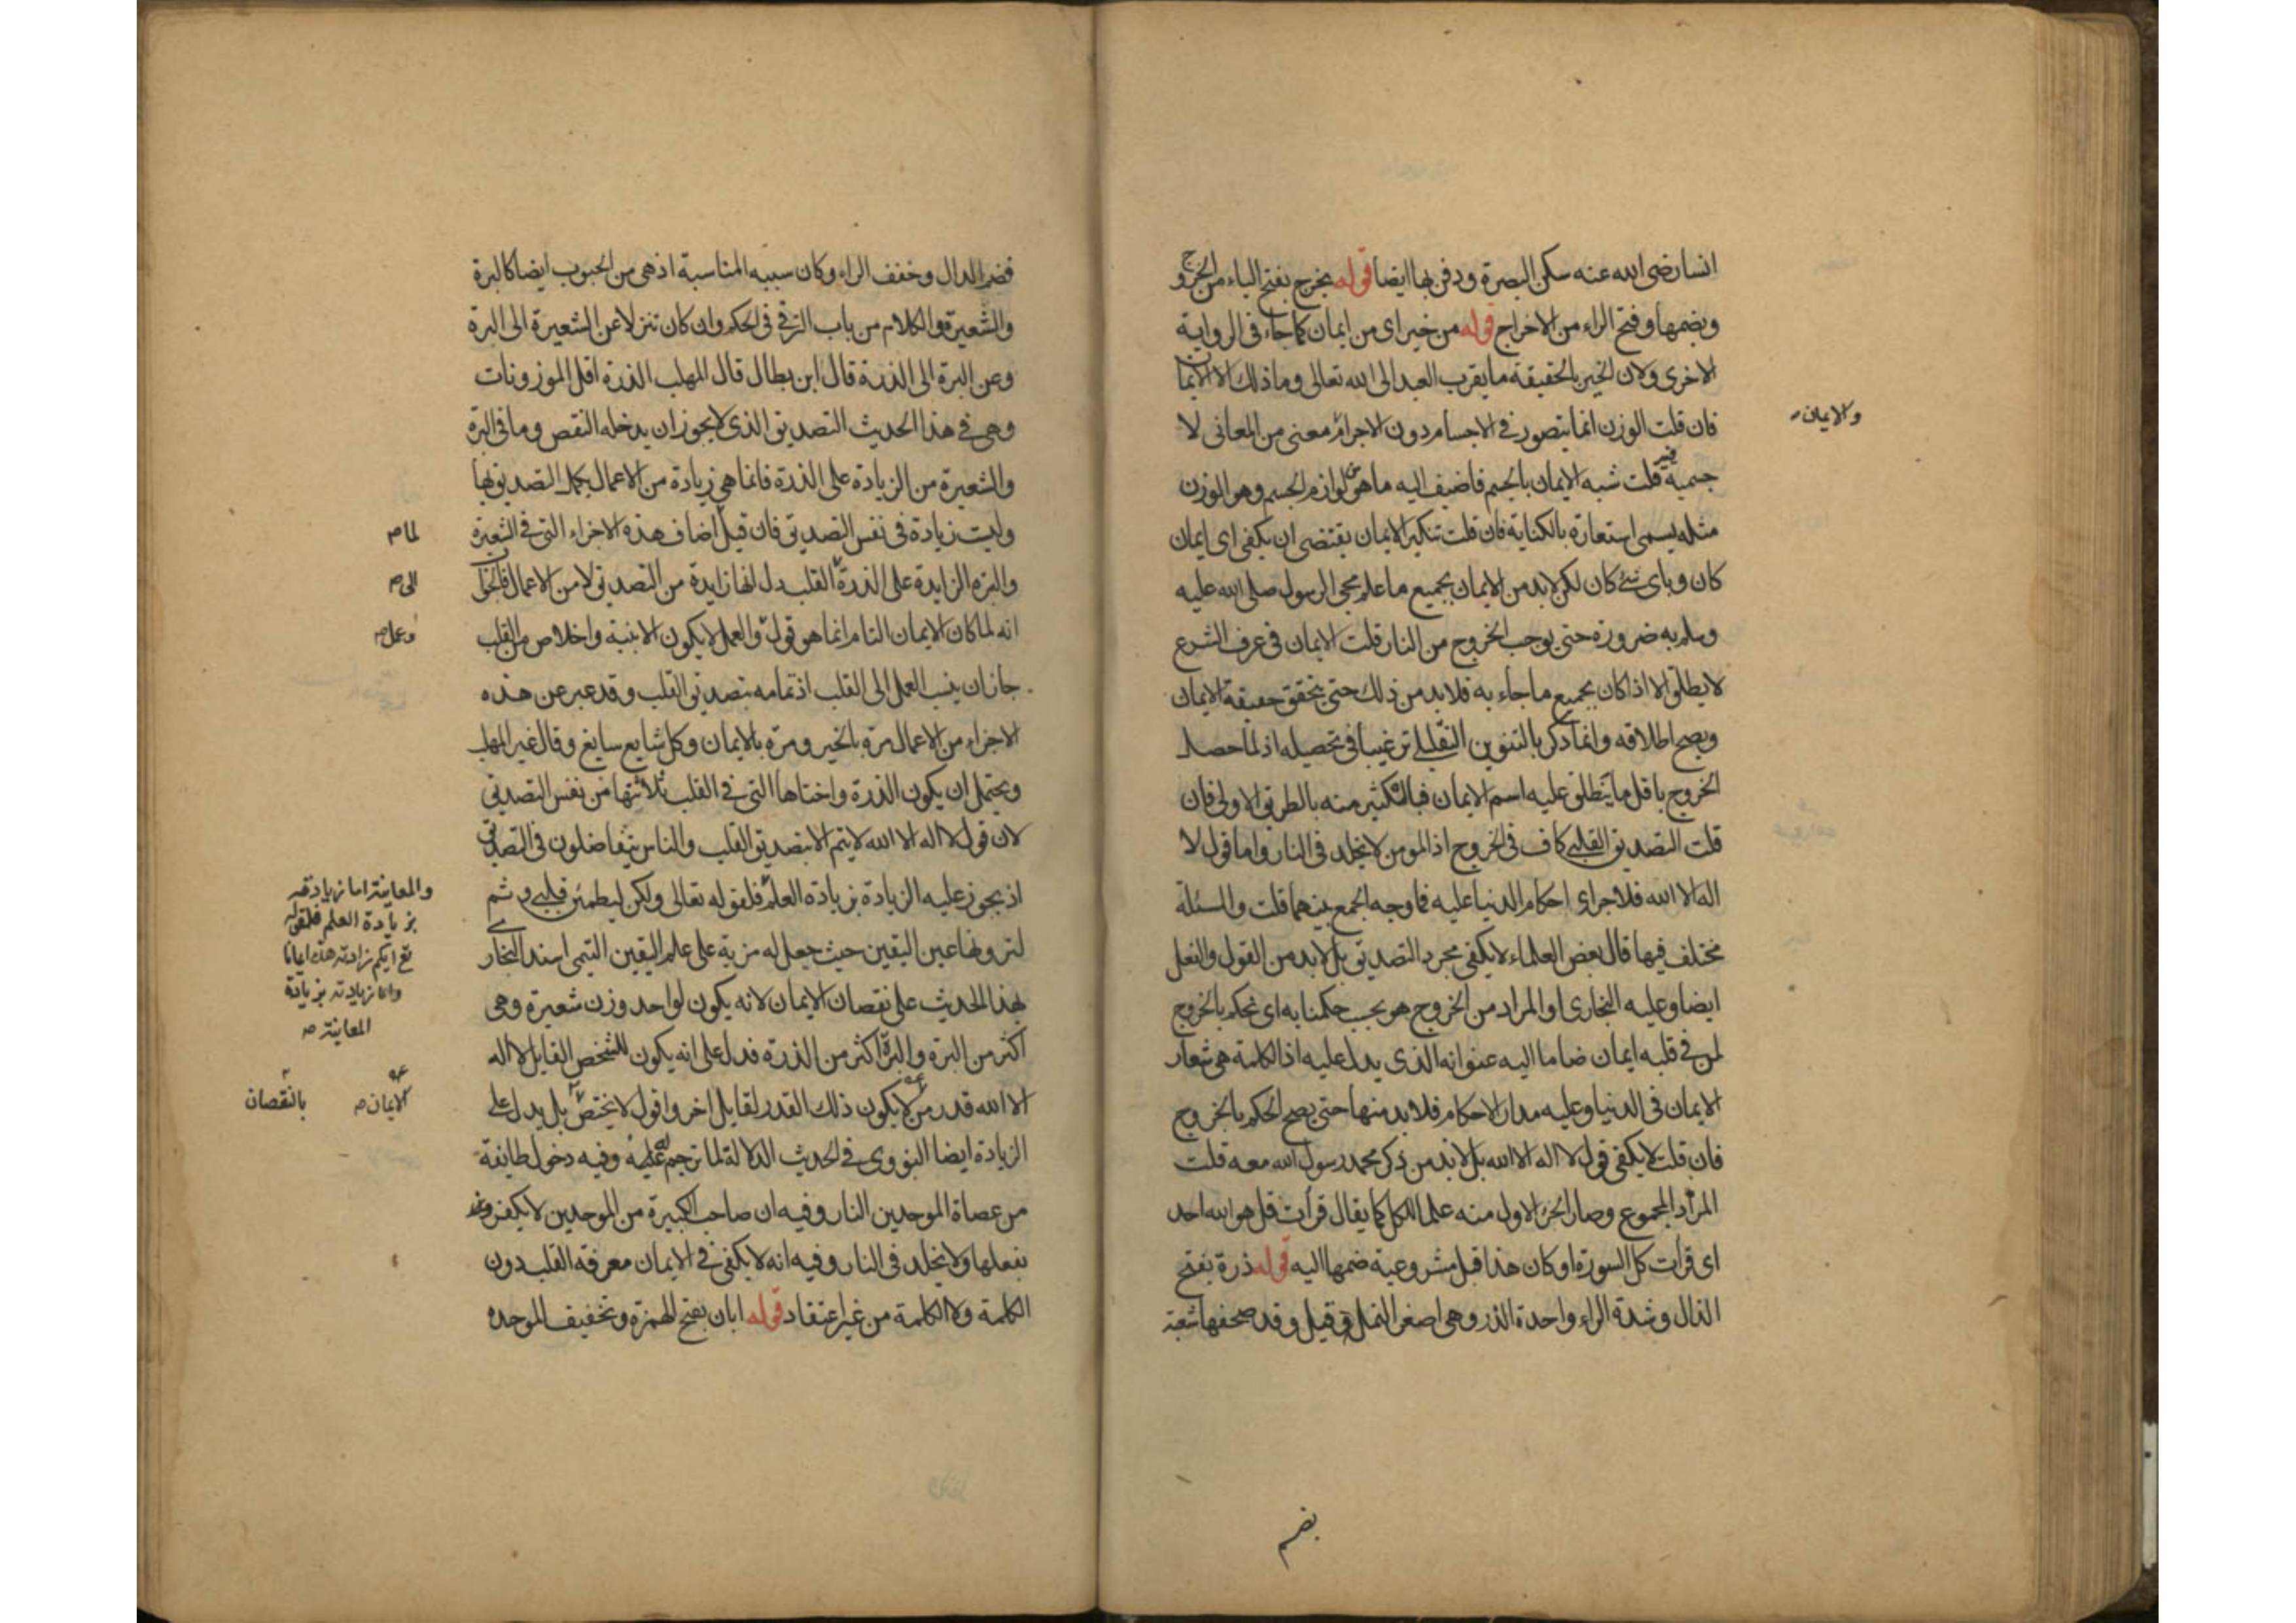 انسا رضى الله عنه سكن البصرة ودفن بها ايضا قوله يخرج بفتح الياء من الخروج
وبضمها وفتح الراء من الاخراج قوله من خير اى من ايمان كما جاء فى الرواية
الاخرى ولان الخير بالحقيقة ما يقرب العبد الى الله تعالى وما ذلك الا الايمان
فان قلت الوزن انما يتصور فى الاجسام دون الاجرام معنى من المعانى لا
والايمان
جسمية فيه قلت شبه الايمان بالجسم فاضيف اليه ما هو من لوازم الجسم وهو الوزن
مثله يسمى استعارة بالكناية فان قلت تنكير الايمان يقتضى ان يكفى اى ايمان
كان وباى شئ كان لكن لابد من الايمان بجميع ما علم مجى الرسول صلى الله عليه
وسلم به ضرورة حتى يوجب الخروج من النار قلت الايمان فى عرف الشرع
لا يطلق الا اذا كان بجميع ما جاء به فلا بد من ذلك حتى يتحقق حقيقة الايمان
ويصح اطلاقه وانما ذكر بالتنوين التقليلى ترغيبا فى تحصيله اذ لما حصل
الخروج باقل ما ينطلق عليه اسم الايمان فبالكثير منه بالطريق الاولى فان
قلت التصديق القلبى كاف فى الخروج اذ المومن لا يخلد فى النار واما قول لا
اله الا الله فلاجراى احكام الدنيا عليه فما وجه الجمع بينهما قلت والمسئلة
مختلف فيها قال بعض العلماء لا يكفى مجرد التصديق بل لابد من القول والفعل
ايضا وعليه البخارى او المراد من الخروج هو بحسب حكمنا به اى نحكم بالخروج
لمن فى قلبه ايمان ضاما اليه عنوانه الذى يدل عليه اذ الكلمة هى شعار
الايمان فى الدنيا وعليه مدار الاحكام فلا بد منها حتى يصح الحكم بالخروج
فان قلت لا يكفى قول لا اله الا الله بل لابد من ذكر محمد رسول الله معه قلت
المراد المجموع وصار الجزء الاول منه علما للكل كما يقال قرات قل هو الله احد
اى قرات كل السورة او كان هذا قبل مشروعية ضمها اليه قوله ذرة بفتح
الذال وشدة الراء واحدة الذر وهى اصغر النمل وقيل وقد صحفها شعبة
بضم
فضم الدال وخفف الراء وكان سببه المناسبة اذ هى من الحبوب ايضا كالبرة
والشعيرة والكلام من باب الترقى فى الحكم وان كان تنزلا عن الشعيرة الى البرة
وعن البرة الى الذرة قال ابن بطال قال المهلب الذرة اقل الموزونات
وهى فى هذا الحديث التصديق الذى لا يجوز ان يدخله النقص وما فى البرة
والشعيرة من الزيادة على الذرة فانما هى زيادة من الاعمال يكمل التصديق بها
وليست زيادة فى نفس التصديق فان قيل اضاف هذه الاجزاء التى فى الشعيرة
لما
والبرة الزايدة على الذرة القلب دل انها زايدة من التصديق لا من الاعمال فالجواب
الى
انه لما كان الايمان التام انما هو قول والعمل لا يكون الا بنية واخلاص من القلب
وعمل
جاز ان ينسب العمل الى القلب اذ تمامه بتصديق القلب وقد عبر عن هذه
الاجزاء من الاعمال مرة بالخير ومرة بالايمان وكل شايع سايغ وقال غير المهلب
ويحتمل ان يكون الذرة واختاها التى فى القلب ثلاثتها من نفس التصديق
لان قول لا اله الا الله لا يتم الا بتصديق القلب والناس يتفاضلون فى التصديق
اذ يجوز عليه الزيادة بزيادة العلم فلقوله تعالى ولكن ليطمئن قلبى و ثم
والمعاينة اما زيادته
بزيادة العلم فلقوله
تع ايكم زادته هذه ايمانا
واما زيادته بزيادة
المعاينة
لترونها عين اليقين حيث جعل له مزية على علم اليقين التيمى اسند البخارى
لهذا الحديث على نقصان الايمان لانه يكون لواحد وزن شعيرة وهى
اكثر من البرة والبرة اكثر من الذرة فدل على انه يكون للشخص القايل لا اله
الا الله قدر من لا يكون ذلك القدر لقايل اخر واقول لا يختص بل يدل على
الايمان
بالنقصان
الزيادة ايضا النووى فى الحديث الدلالة لما ترجم له عليه وفيه دخول طائفة
من عصاة الموحدين النار وفيه ان صاحب الكبيرة من الموحدين لا يكفر
بفعلها ولا يخلد فى النار وفيه انه لا يكفى فى الايمان معرفة القلب دون
الكلمة ولا الكلمة من غير اعتقاد قوله ابان بفتح الهمزة وتخفيف الموحده